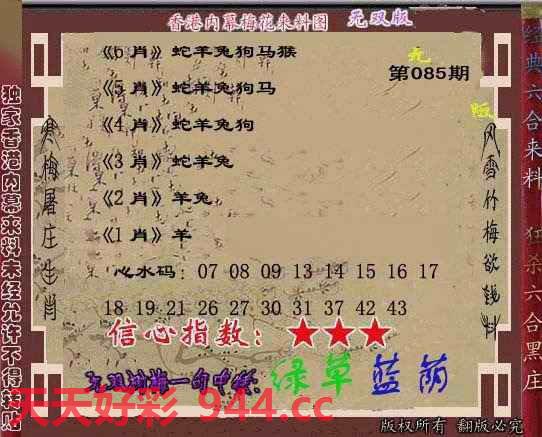 香港内幕梅花来料图 无双版
《6 肖》蛇羊兔狗马猴
第085期
《5 肖》蛇羊兔狗马
《4 肖》蛇羊兔狗
《3 肖》蛇羊兔
《2 肖》羊兔
《1 肖》羊
心水码： 07 08 09 13 14 15 16 17
18 19 21 26 27 30 31 37 42 43
信心指数：★★★
一句中特：绿草蓝荫
天天好彩 944.cc
版权所有 翻版必究
独家香港内幕来料未经允许不得转贴
寒梅屠庄生肖
风雪竹梅欲钱料
经典六合来料 狂杀六合黑庄